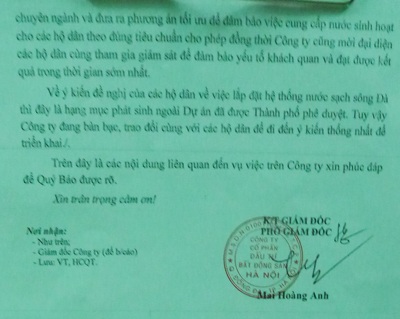 chuyên ngành và đưa ra phương án tối ưu để đảm bảo việc cung cấp nước sinh hoạt
cho các hộ dân theo đúng tiêu chuẩn cho phép đồng thời Công ty cũng mời đại diện
các hộ dân cùng tham gia giám sát để đảm bảo yếu tố khách quan và đạt được kết
quả trong thời gian sớm nhất.
Về ý kiến đề nghị của các hộ dân về việc lắp đặt hệ thống nước sạch sông Đà
thì đây là hạng mục phát sinh ngoài Dự án đã được Thành phố phê duyệt. Tuy vậy
Công ty đang bàn bạc, trao đổi cùng với các hộ dân để đi đến ý kiến thống nhất để
triển khai./.
Trên đây là các nội dung liên quan đến vụ việc trên Công ty xin phúc đáp
để Quý Báo được rõ.
Xin trân trọng cảm ơn!
K/T GIÁM ĐỐC
PHÓ GIÁM ĐỐC
Nơi nhận:
- Như trên,
- Giám đốc Công ty (để b/cáo)
- Lưu: VT, HCQT.
CÔNG TY
CỔ PHẦN
ĐẦU TƯ
BẤT ĐỘNG SẢN
HÀ NỘI
Mai Hoàng Anh